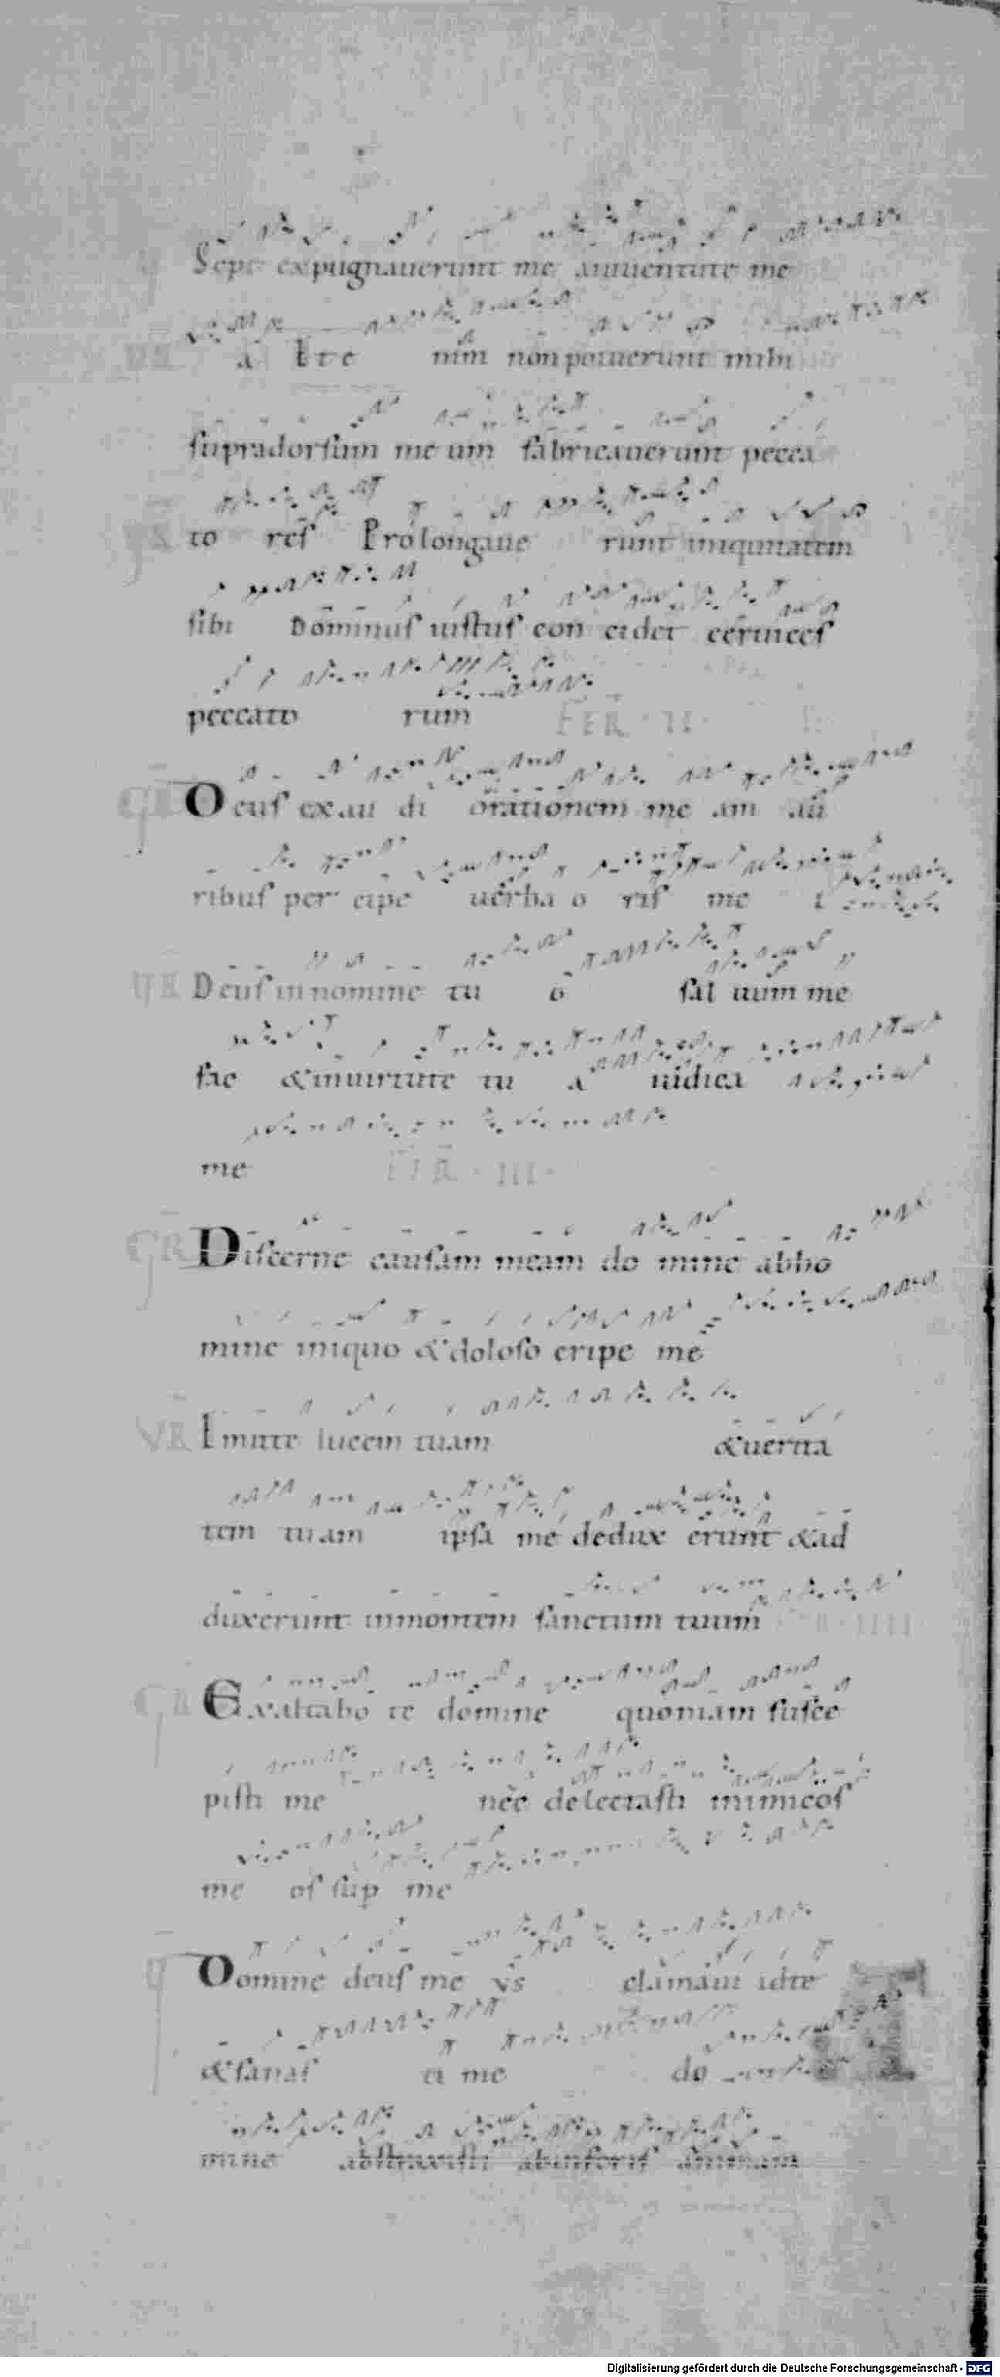 Sepe expugnauerunt me aiuuentute me
VR a Ite nim non potuerunt mihi
supra dorsum me um fabricauerunt pecca
to res Prolongaue runt iniquitatem
sibi Dominus iustus con cidet ceruices
peccato rum FER · II ·
GR Deus exau di orationem me am au
ribus per cipe uerba o ris me i
VR Deus in nomine tu o sal uum me
fac & in uirtute tu a iudica
me FER · III ·
GR Discerne causam meam do mine abho
mine iniquo & doloso eripe me
VR Emitte lucem tuam & uerita
tem tuam ipsa me dedux erunt & ad
duxerunt in montem sanctum tuum FER · IIII ·
GR Exaltabo te domine quoniam susce
pisti me nec delectasti inimicos
me os sup me
Domine deus me us clamaui ad te
& sanas ti me do
mine abstraxisti ab inferis animam
Digitalisierung gefördert durch die Deutsche Forschungsgemeinschaft - DFG